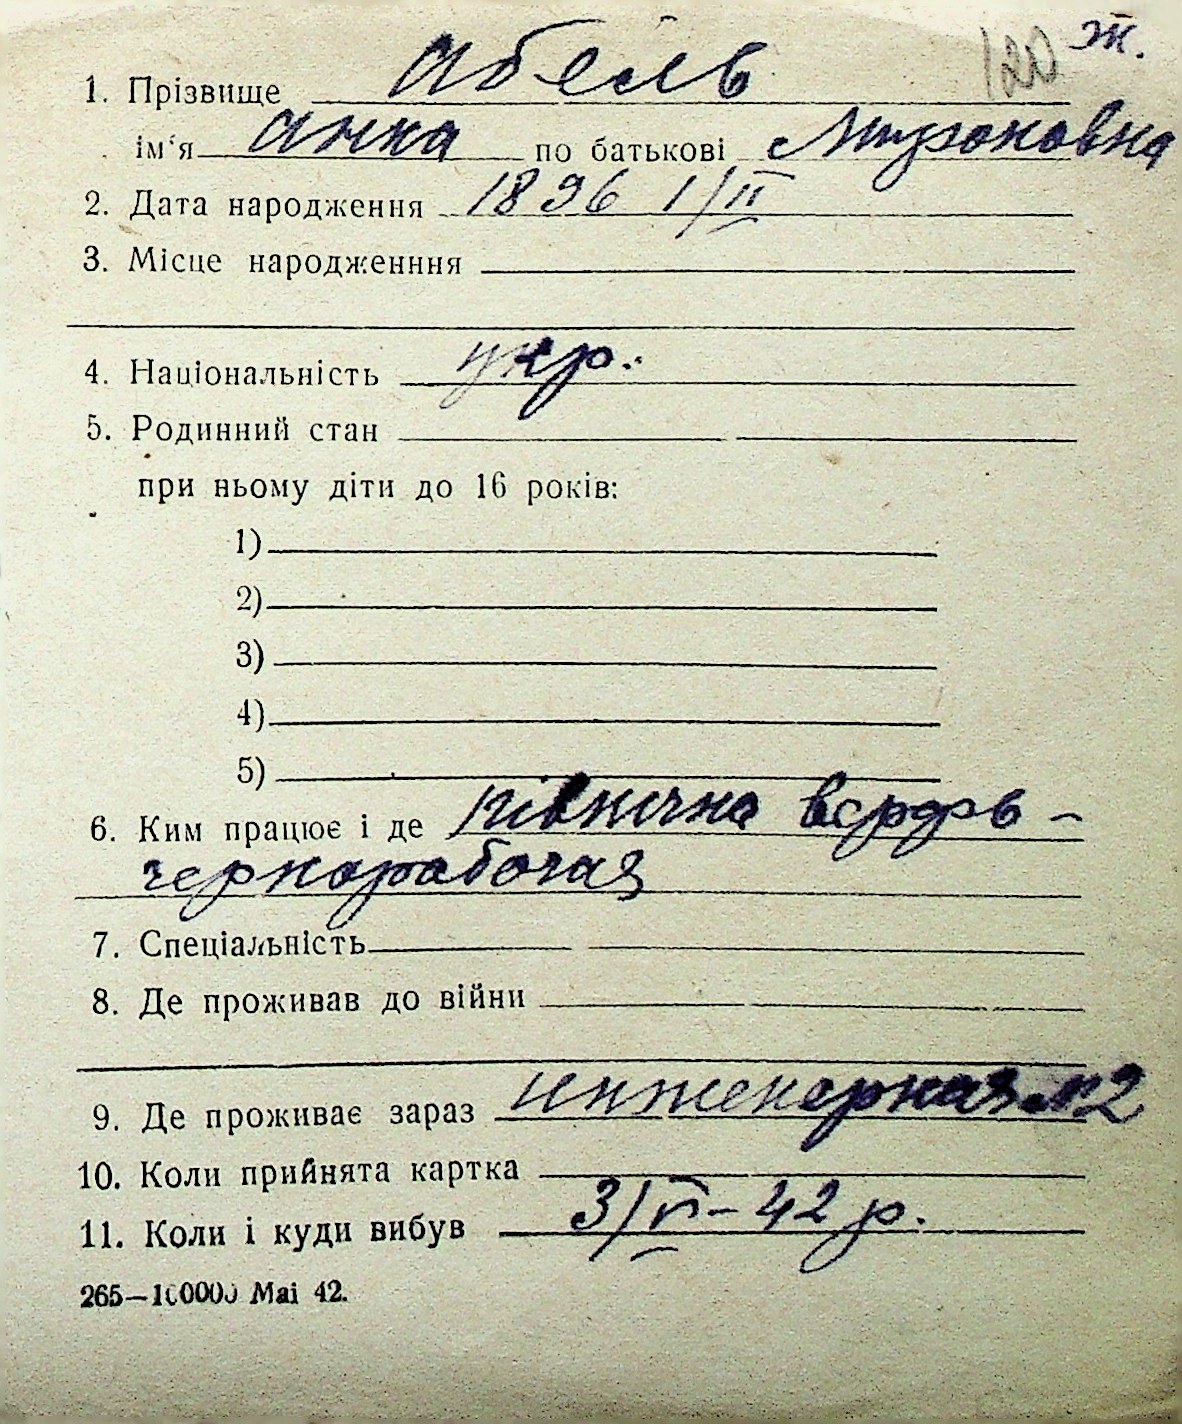 120 ж.
1. Прізвище Абель
ім'я Анна по батькові
2. Дата народження 1896 1/II
3. Місце народженння
4. Національність укр.
5. Родинний стан
при ньому діти до 16 років:
1)
2)
3)
4)
5)
6. Ким працює і де північна верфь –
чернорабочая
7. Спеціальність
8. Де проживав до війни
9. Де проживає зараз Инженерная №2
10. Коли прийнята картка
11. Коли і куди вибув 3/VI – 42 р.
265—100000 Mai 42.